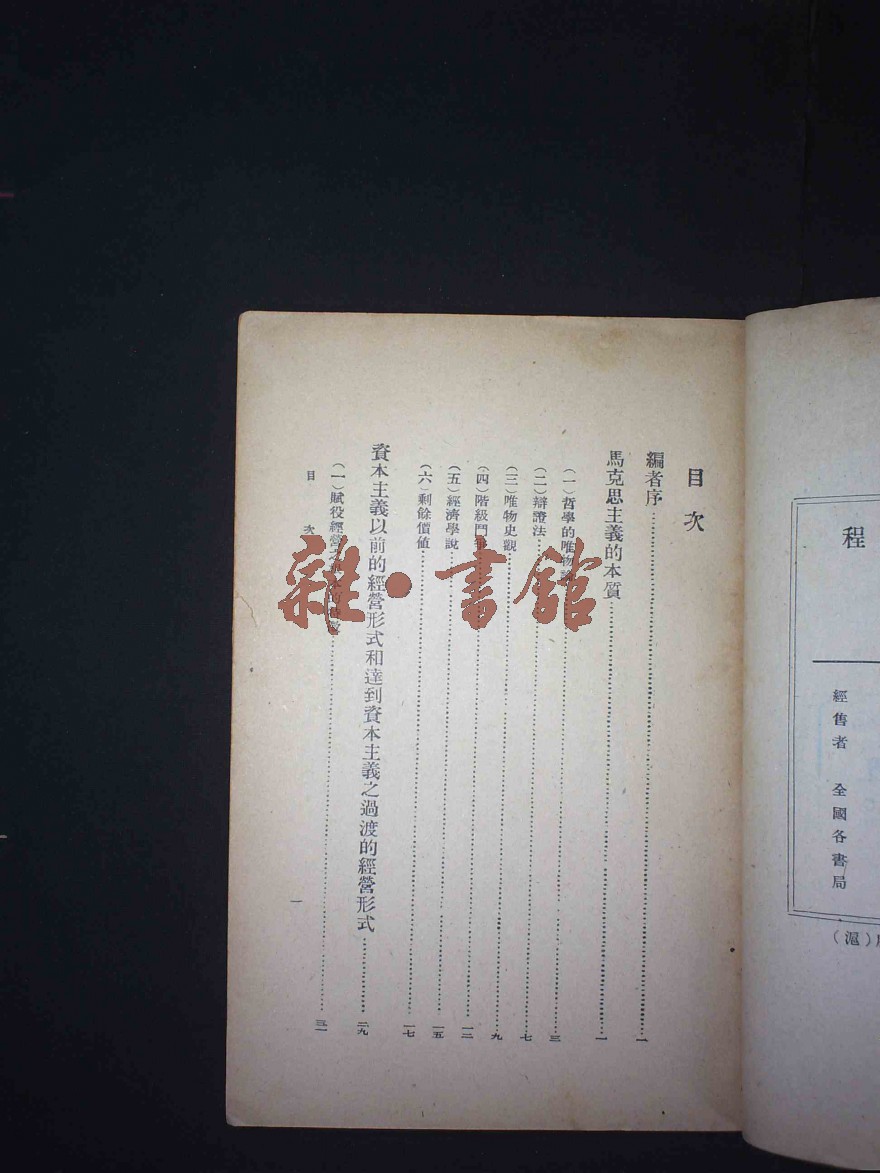 程
經售者　全國各書局
（滬）
目次
編者序…………一
馬克思主義的本質…………一
（一）哲學的唯物論…………三
（二）辯證法…………七
（三）唯物史觀…………九
（四）階級鬥爭…………一二
（五）經濟學說…………一五
（六）剩餘價値…………一七
資本主義以前的經營形式和達到資本主義之過渡的經營形式…………二九
（一）賦役經營之…………三一
目次
一
雜·書館